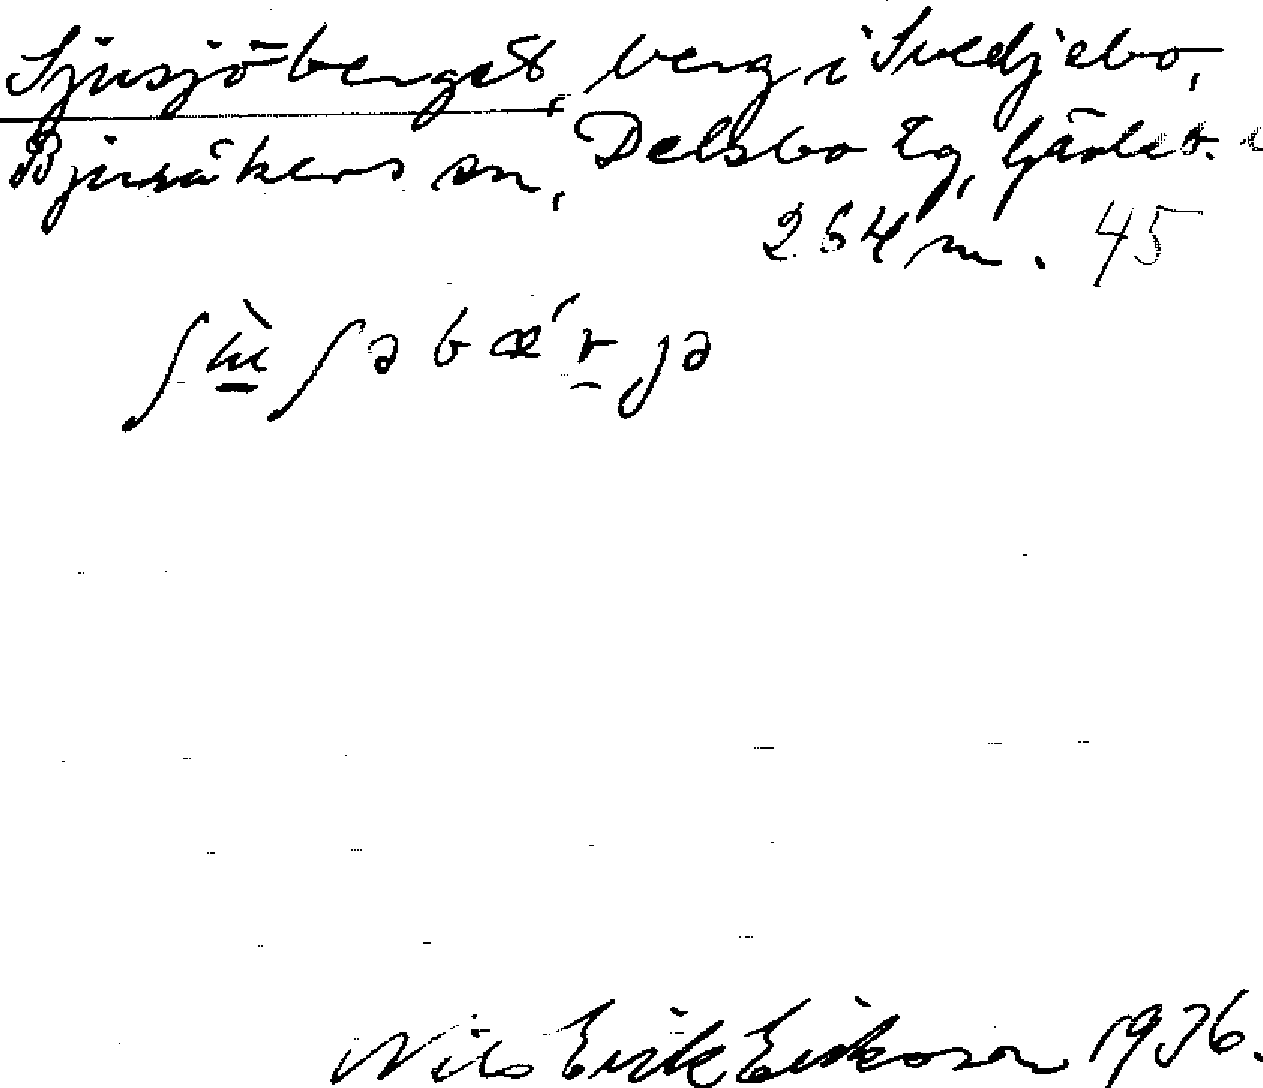 Sjusjöberget, berg i Svedjebo,
Bjuråkers sn, Delsbo tg, Gävleb.
264 m. 45
ʃʉ̀ʃəbæ´rjə
Nils Erik Eriksson 1936.